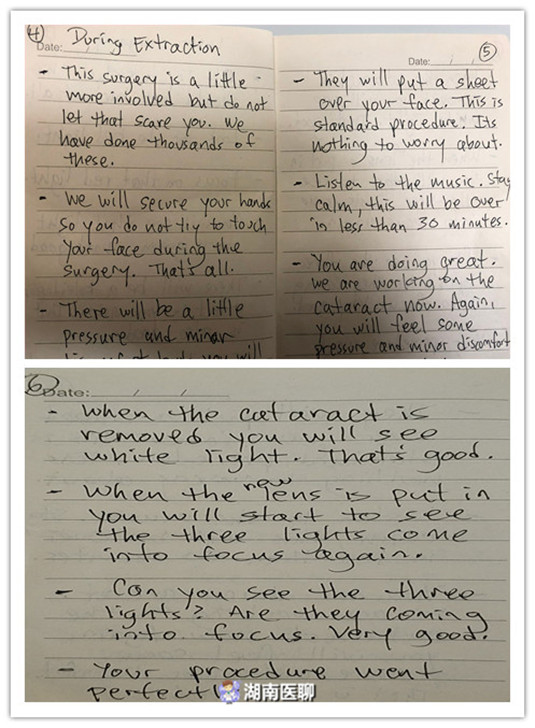 4
During Extraction
Date:
- This surgery is a little
more involved but do not
let that scare you. We
have done thousands of
these.
- We will secure your hands
so you do not try to touch
your face during the
surgery. That's all.
- There will be a little
pressure and minor
you will
5
Date:
- They will put a sheet
over your face. This is
standard procedure. Its
nothing to worry about.
- Listen to the music. Stay
calm, this will be over
in less than 30 minutes.
- You are doing great.
we are working on the
cataract now. Again,
you will feel some
pressure and minor discomfort
6
Date:
- When the cataract is
removed you will see
white light. That's good.
- When the new lens is put in
you will start to see
the three lights come
into focus again.
- Can you see the three
lights? Are they coming
into focus. Very good.
- Your procedure went
湖南医聊